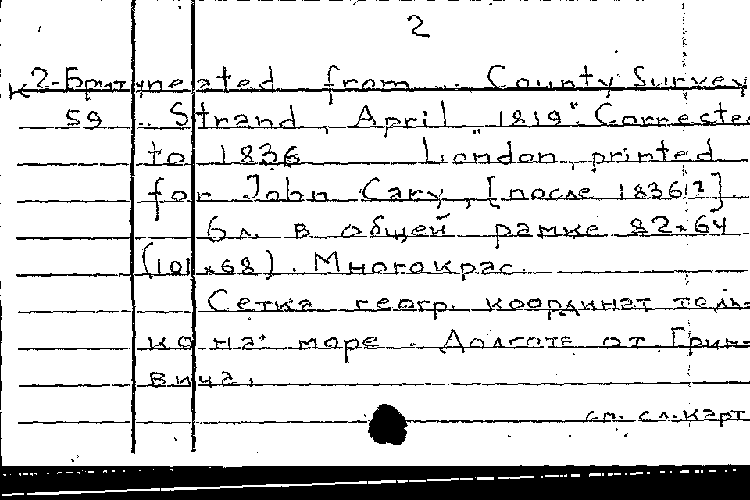 2
К2-Брит neated from .. County Survey
59 .. Strand, April 1819". Corrected
to 1836 London, printed
for John Cary, [после 1836?].
6 л. в общей рамке 82×64
(101×68). Многокрас.
Сетка геогр. координат толь-
ко на море. Долгота от Грин-
вича.
см. сл. карт